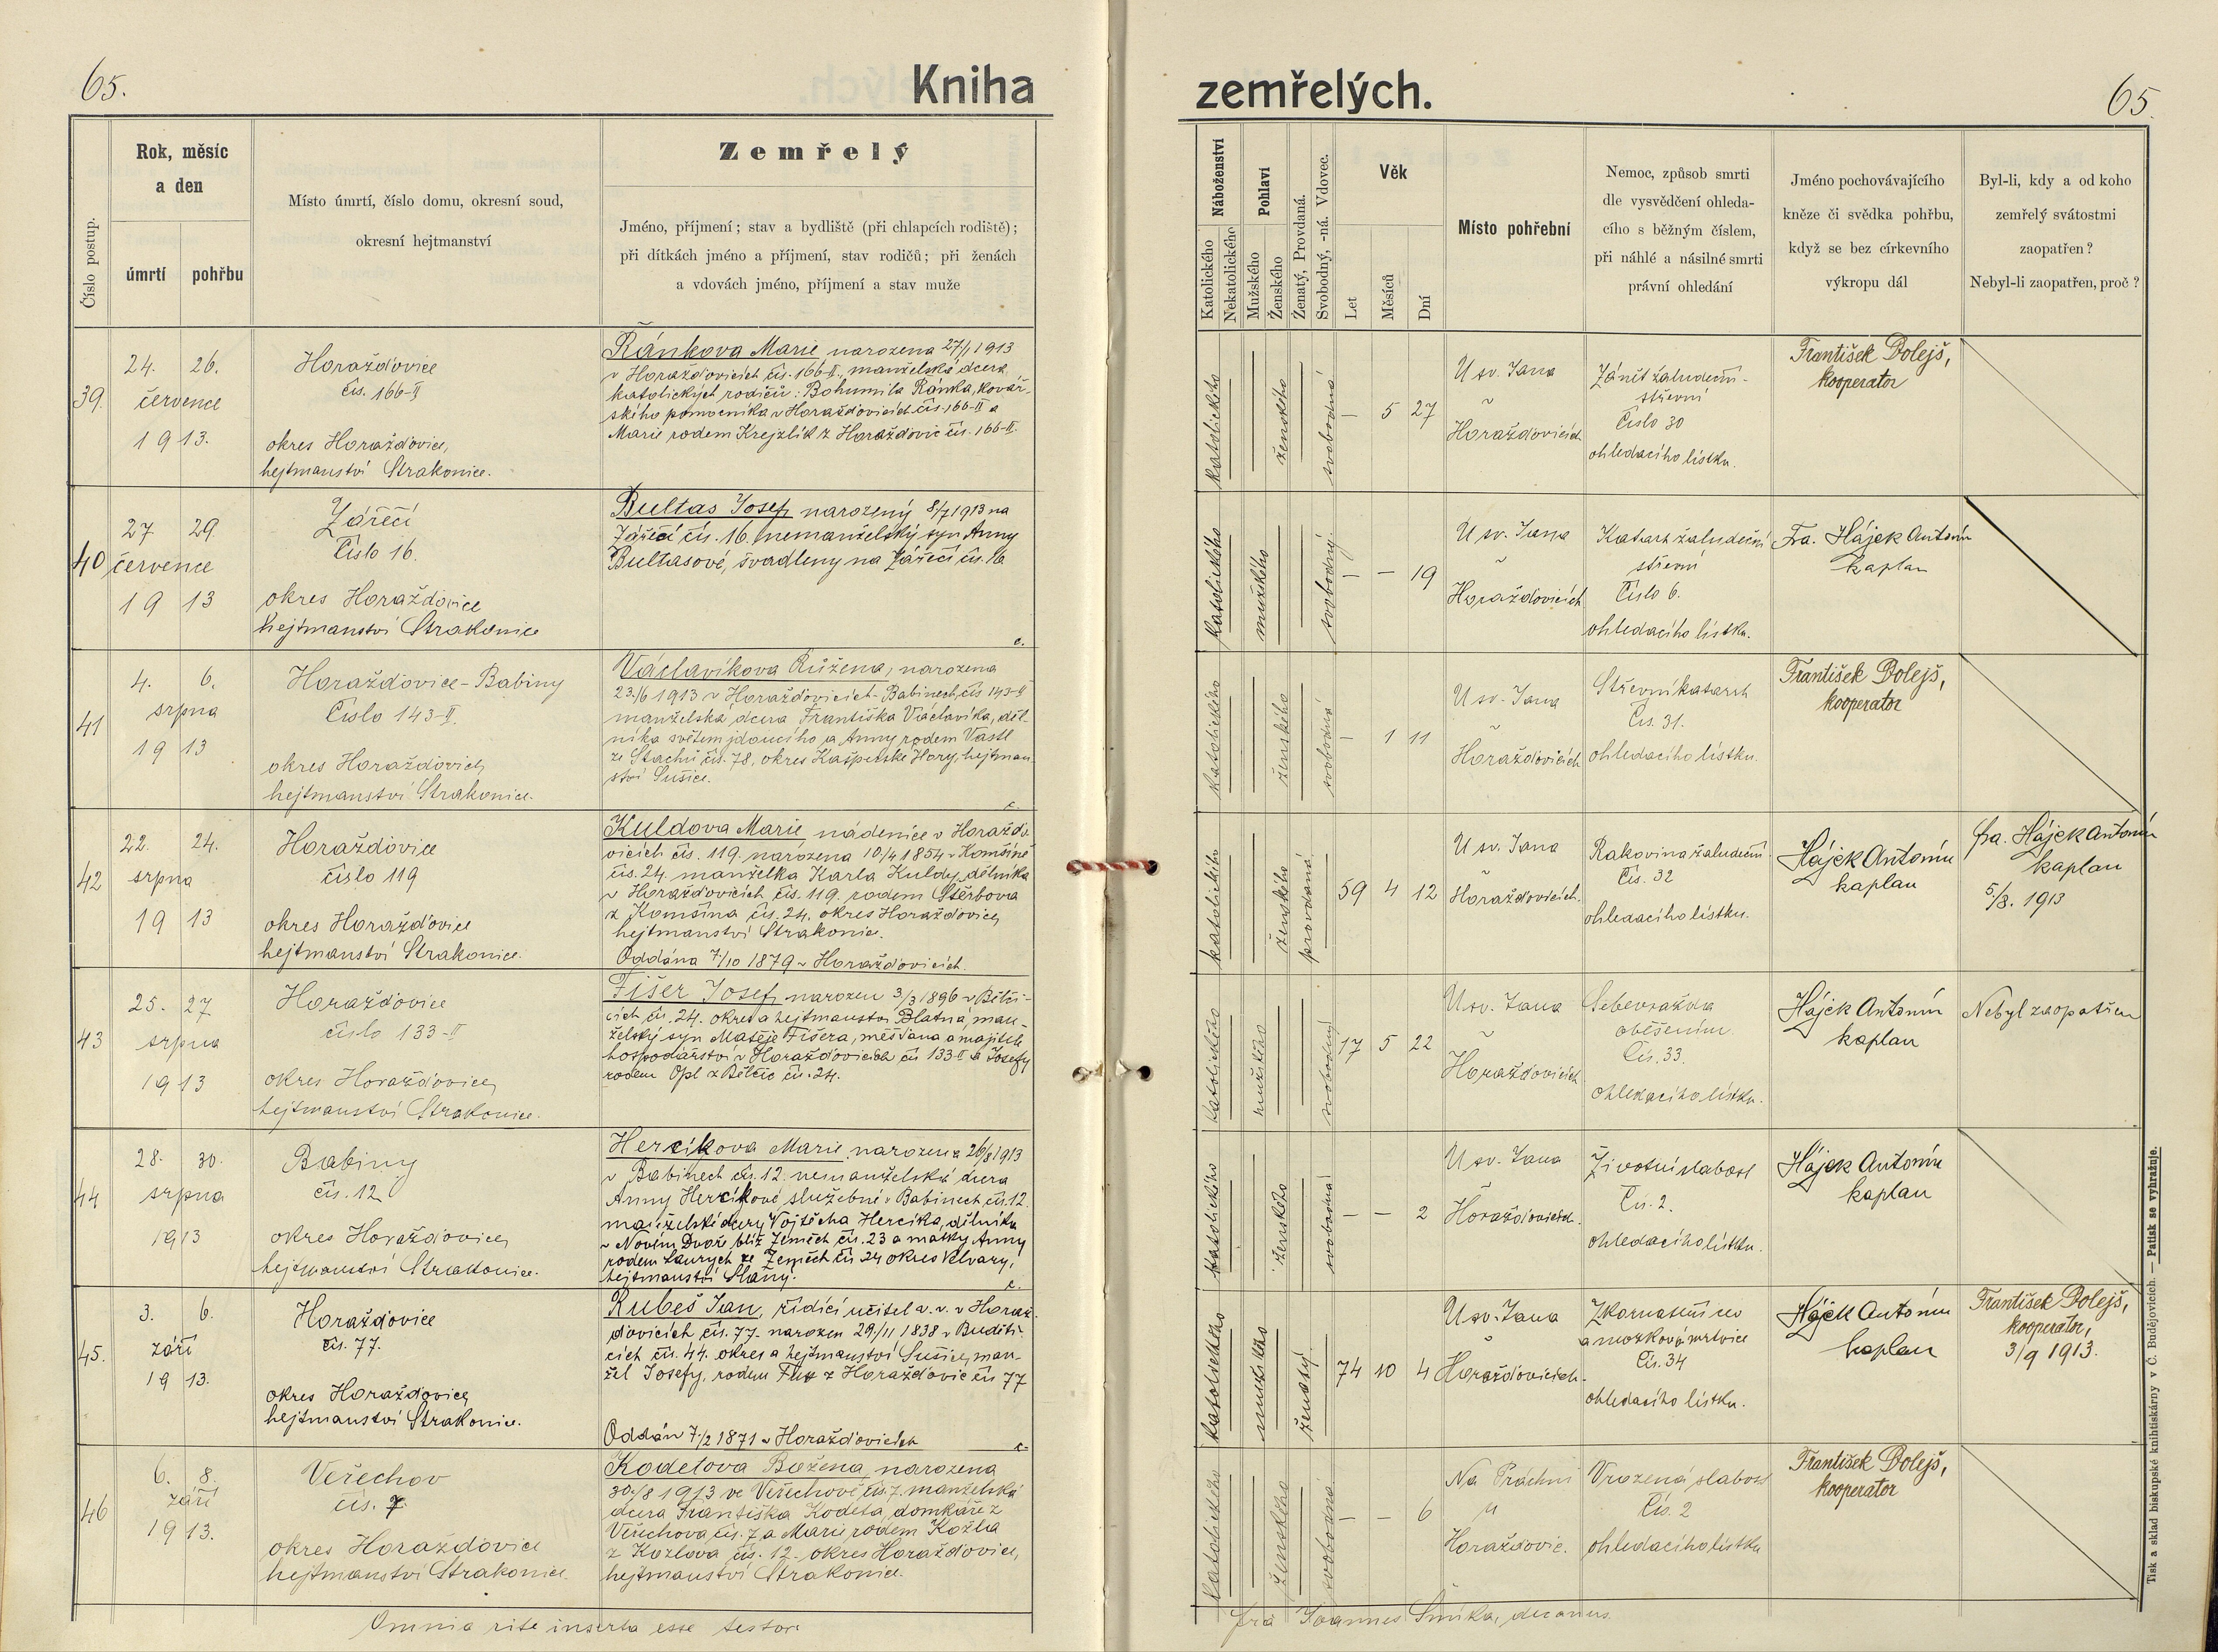 65.
Kniha
zemřelých.
65.
Číslo postup.
Rok, měsíc
a den
úmrtí
pohřbu
Místo úmrtí, číslo domu, okresní soud,
okresní hejtmanství
Zemřelý
Jméno, příjmení; stav a bydliště (při chlapcích rodiště);
při dítkách jméno a příjmení, stav rodičů; při ženách
a vdovách jméno, příjmení a stav muže
Náboženství
Katolického
Nekatolického
Pohlaví
Mužského
Ženského
Ženatý, Provdaná.
Svobodný, -ná. Vdovec.
Věk
Let
Měsíců
Dní
Místo pohřební
Nemoc, způsob smrti
dle vysvědčení ohleda-
cího s běžným číslem,
při náhlé a násilné smrti
právní ohledání
Jméno pochovávajícího
kněze či svědka pohřbu,
když se bez církevního
výkropu dál
Byl-li, kdy a od koho
zemřelý svátostmi
zaopatřen?
Nebyl-li zaopatřen, proč?
39.
24. 26.
července
1913.
Horažďovice
čís. 166-II
okres Horažďovice,
hejtmanství Strakonice.
Ránkova Marie narozena 27/1 1913
v Horažďovicích čís. 166-II, manželská dcera
katolických rodičů: Bohumila Ránka, kovář-
ského pomocníka v Horažďovicích čís. 166-II a
Marie rodem Krejzlík z Horažďovic čís. 166-II.
katolického
ženského
svobodná
— 5 27
U sv. Jana
v
Horažďovicích
Zánět žaludeční-
střevní
Číslo 30
ohledacího lístku.
František Dolejš,
kooperator
40
27 29.
července
1913
Zářečí
Číslo 16.
okres Horažďovice
hejtmanství Strakonice
Bultas Josef narozený 8/7 1913 na
Zářečí čís. 16. nemanželský syn Anny
Bultasové, švadleny na Zářečí čís. 16
c.
katolického
mužského
svobodný
— — 19
U sv. Jana
v
Horažďovicích
Katarh žaludeční
střevní
Číslo 6.
ohledacího lístku.
Fra. Hájek Antonín
kaplan
41
4. 6.
srpna
1913
Horažďovice-Babiny
Číslo 143-II.
okres Horažďovice,
hejtmanství Strakonice.
Václavíkova Růžena, narozena
23./6 1913 v Horažďovicích-Babinech, čís 143-II
manželska dcera Františka Václavíka, děl-
níka světem jdoucího a Anny rodem Vastl
ze Stachů čís. 78, okres Kašperské Hory, hejtman
ství Sušice.
c.
katolického
ženského
svobodná
— 1 11
U sv. Jana
v
Horažďovicích
Střevní katarh
Čís. 31.
ohledacího lístku.
František Dolejš,
kooperator
42
22. 24.
srpna
1913
Horažďovice
číslo 119
okres Horažďovice
hejtmanství Strakonice.
Kuldova Marie nádenice v Horažďo-
vicích čís. 119. narozena 10/4 1854 v Komšíně
čís. 24. manželka Karla Kuldy, dělníka
v Horažďovicích čís. 119. rodem Štěrbova
z Komšína čís. 24. okres Horažďovice,
hejtmanství Strakonice.
Oddána 7/10 1879 v Horažďovicích.
katolického
ženského
provdaná
59 4 12
U sv. Jana
v
Horažďovicích.
Rakovina žaludeční
Čís. 32
ohledacího lístku.
Hájek Antonín
kaplan
fra. Hájek Antonín
kaplan
5/8. 1913
43
25. 27
srpna
1913
Horažďovice
číslo 133-II
okres Horažďovice,
hejtmanství Strakonice.
Fišer Josef, narozen 3/3 1896 v Bělči-
cích čí. 24. okres a hejtmanství Blatná, man-
želský syn Matěje Fišera, měšťana a majitele
hospodářství v Horažďovicích čís 133-II a Josefy
rodem Opl z Bělčic čís. 24.
katolického
mužského
svobodný
17 5 22
U sv. Jana
v
Horažďovicích
Sebevražda
oběšením.
Čís. 33.
ohledacího lístku.
Hájek Antonín
kaplan
Nebyl zaopatřen
44
28. 30.
srpna
1913
Babiny
čís. 12
okres Horažďovice,
hejtmanství Strakonice.
Hercíkova Marie, narozena 26/8 1913
v Babinech čís. 12. nemanželská dcera
Anny Hercíkové služebné v Babinech čís. 12.
manželské dcery Vojtěcha Hercíka, dělníka
v Novém Dvoře blíž Zeměch čís. 23 a matky Anny
rodem Laurych ze Zeměch čís 24 okres Velvary,
hejtmanství Slaný.
c.
katolického
ženského
svobodná
— — 2
U sv. Jana
v
Horažďovicích.
Životní slabost
Čís. 2.
ohledacího lístku.
Hájek Antonín
kaplan
45.
3. 6.
září
1913.
Horažďovice
čís. 77.
okres Horažďovice,
hejtmanství Strakonice.
Rubeš Jan, řídící učitel v. v. v Horaž-
ďovicích čís. 77. narozen 29./11 1838 v Buděti-
cích čís. 44. okres a hejtmanství Sušice, man-
žel Josefy, rodem Fux z Horažďovic čís 77
Oddán 7./2 1871 v Horažďovicích
c.
katolického
mužského
ženatý.
74 10 4
U sv. Jana
v
Horažďovicích.
Zkornatění cev
a mozková mrtvice
Čís. 34
ohledacího lístku.
Hájek Antonín
kaplan
František Dolejš,
kooperator,
3/9 1913.
46
6. 8.
září
1913.
Veřechov
čís. 7.
okres Horažďovice
hejtmanství Strakonice.
Kodetova Božena, narozena
30./8 1913 ve Veřechově čís. 7. manželská
dcera Františka Kodeta, domkáře z
Veřechova čís. 7 a Marie rodem Kozla
z Kozlova čís. 12. okres Horažďovice,
hejtmanství Strakonice.
katolického
ženského
svobodná
— — 6
Na Práchni
u
Horažďovic.
Vrozená slabost
Čís. 2
ohledacího lístku
František Dolejš,
kooperator
Omnia rite inserta esse testor
fra Joannes Šmíka, decanus
Tisk a sklad biskupské knihtiskárny v Č. Budějovicích. — Patisk se vyhražuje.